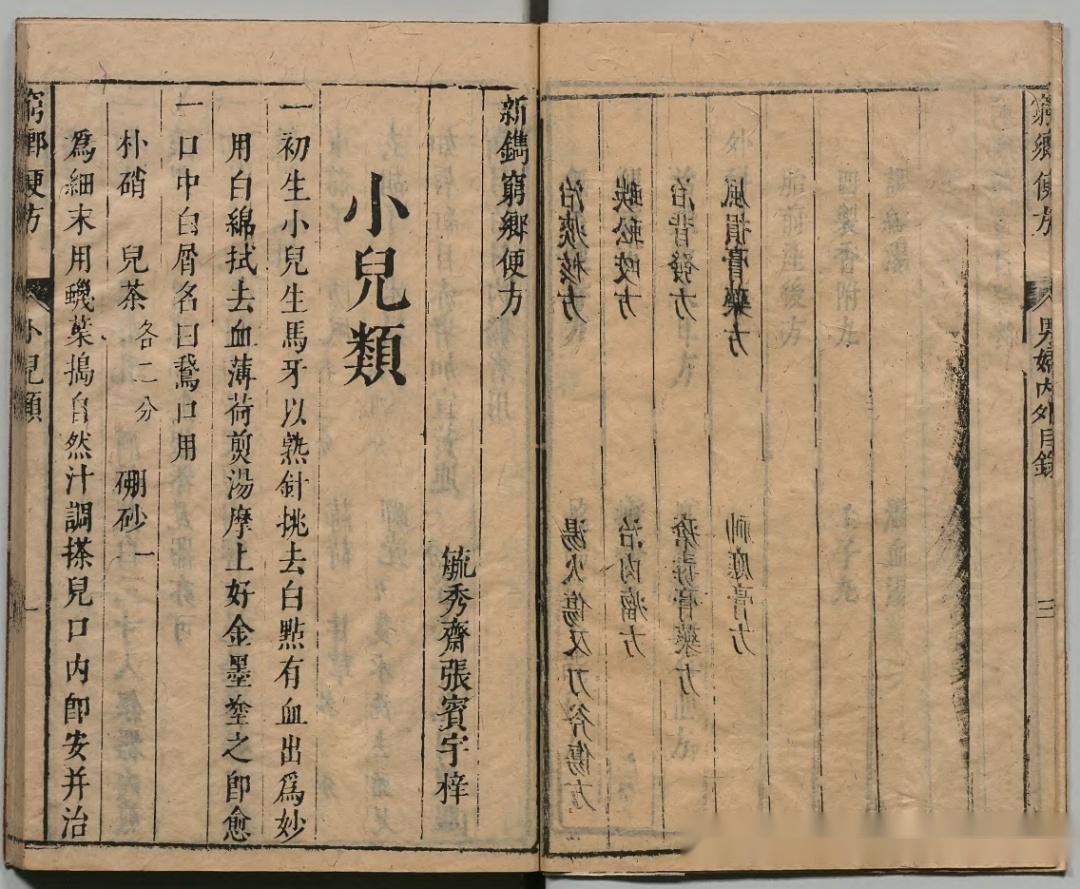 窮鄉便方 男婦內外目錄 三
風損膏藥方 神應膏方
治背發方 瘡毒膏藥方
蜈蚣咬方 治肉瘤方
治痰核方 湯火傷及刀斧傷方
新鐫窮鄉便方
毓秀齋張賓宇梓
小兒類
一初生小兒生馬牙以熱針挑去白點有血出爲妙
用白綿拭去血薄荷煎湯摩上好金墨塗之卽愈
一口中白屑名曰鵞口用
朴硝 兒茶各二分 硼砂一
爲細末用蟣葉搗自然汁調搽兒口內卽安并治
窮鄉便方 小兒類 一